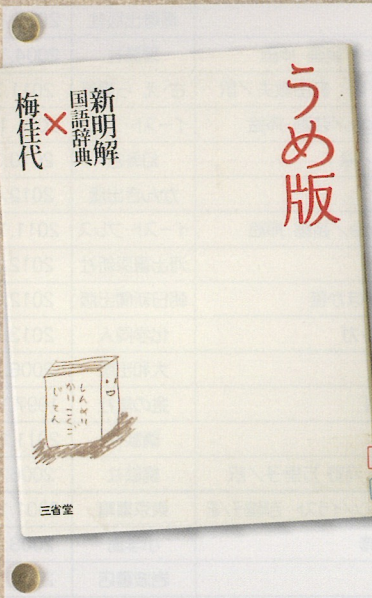 うめ版
新明解
国語辞典
×
梅佳代
しんめい
かいこくご
じてん
三省堂